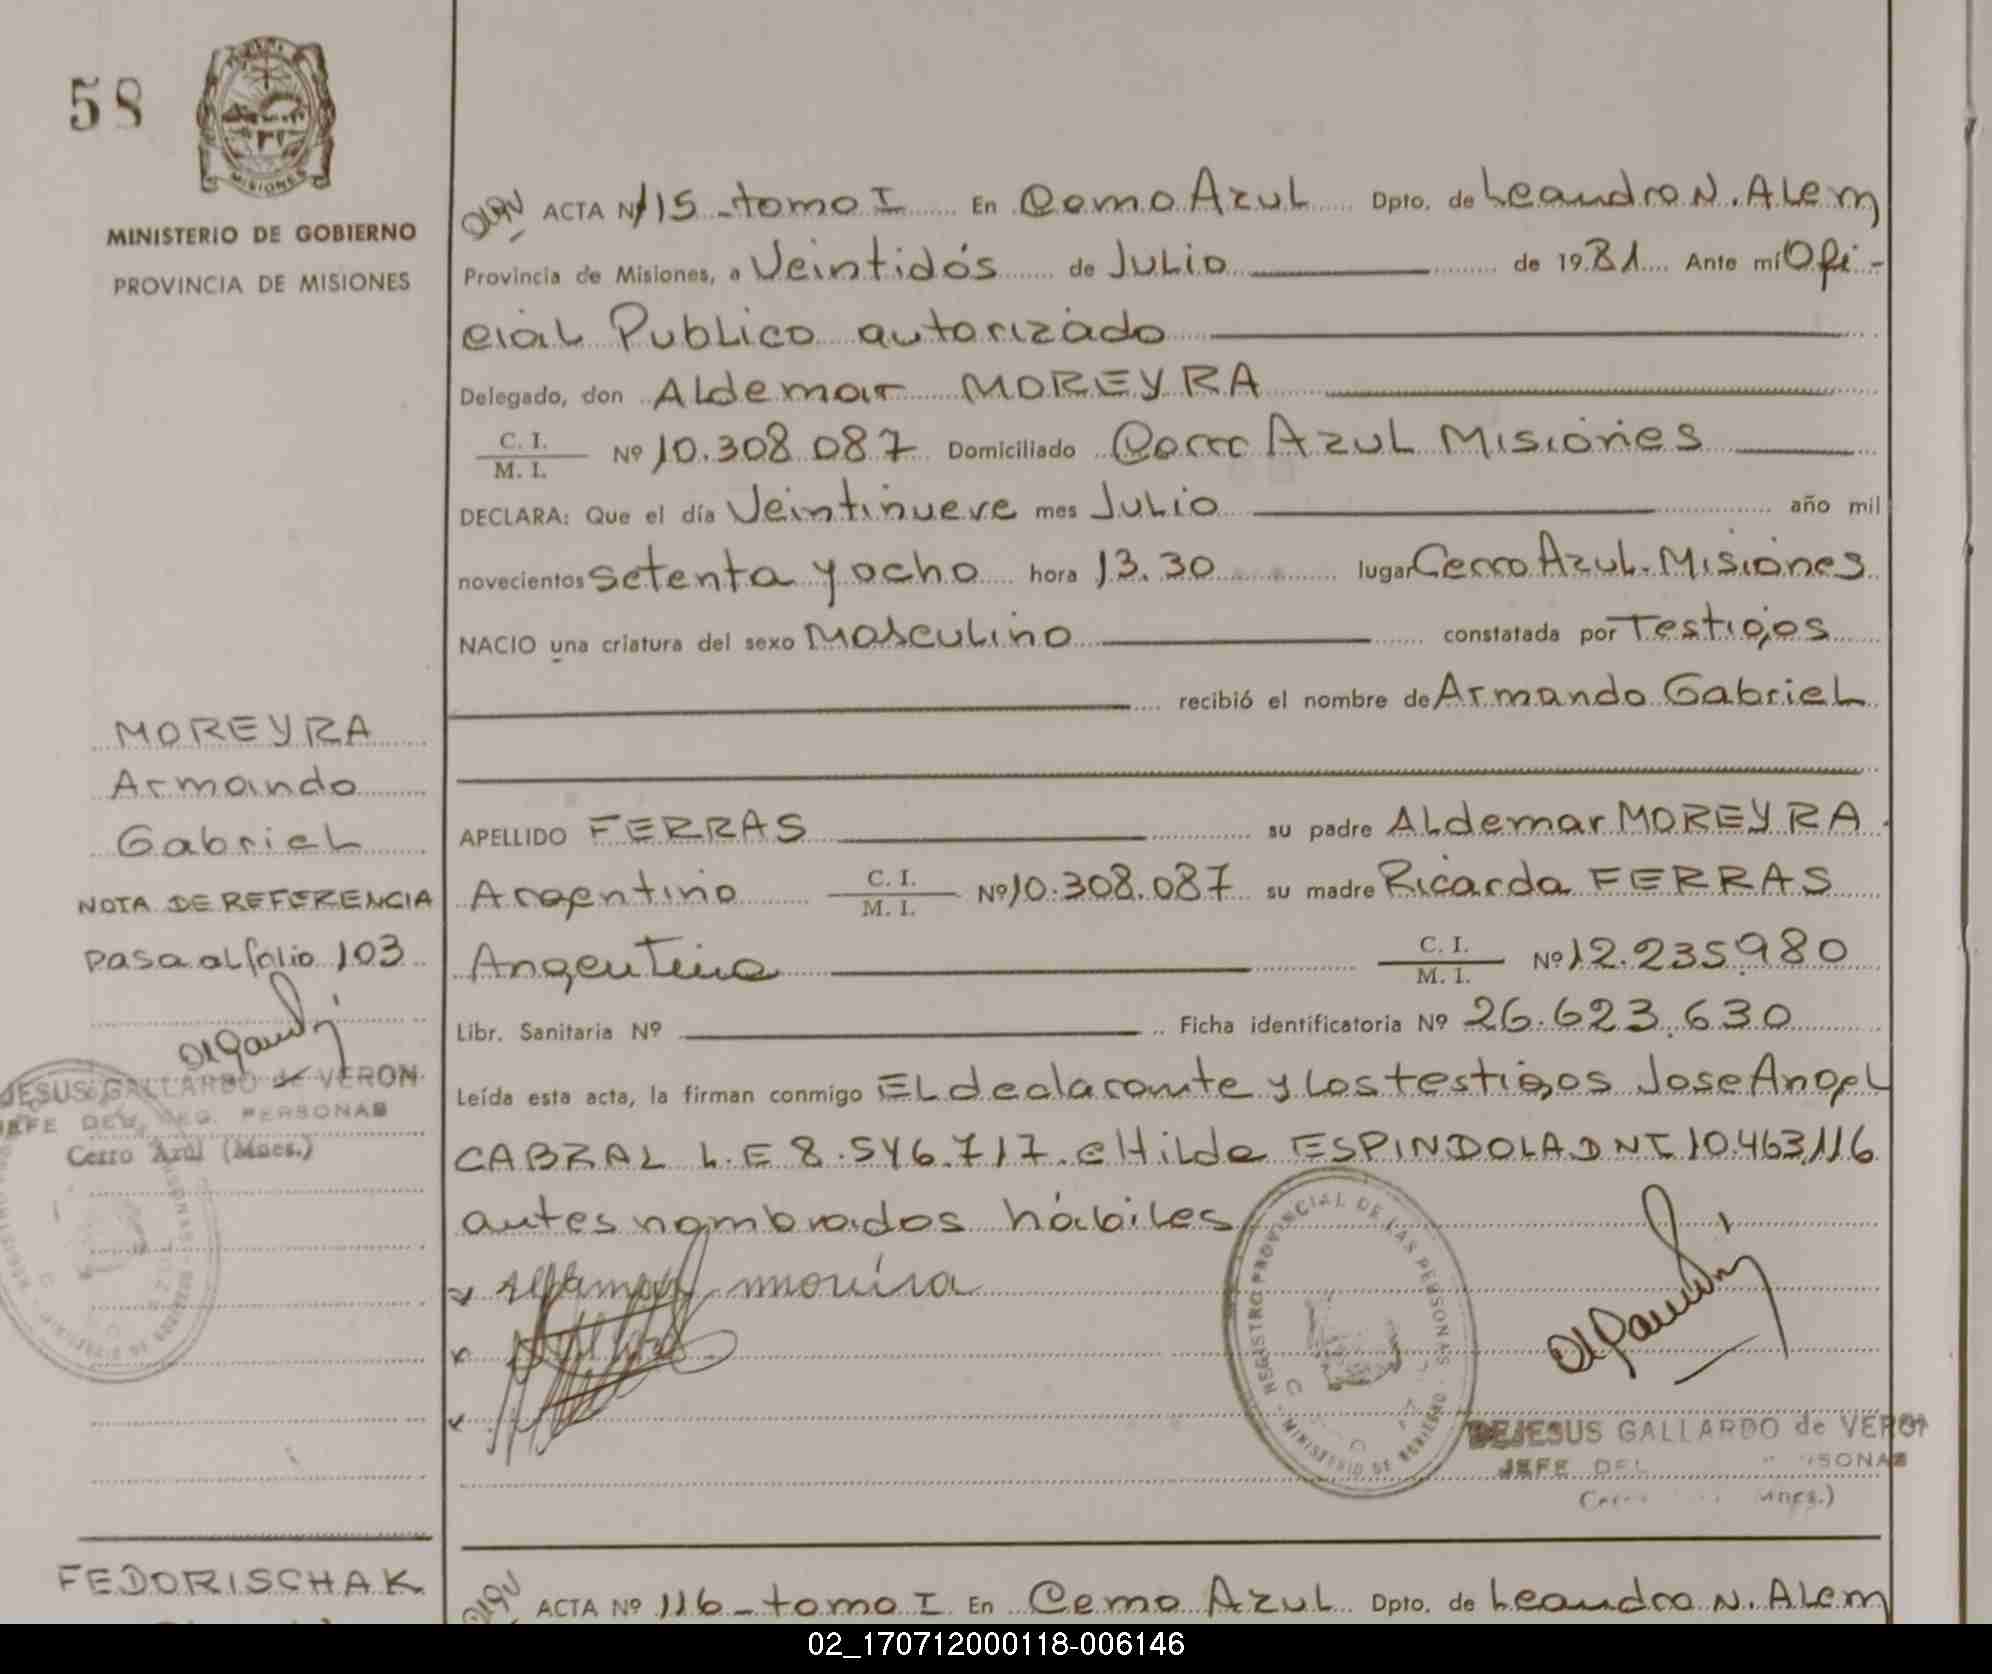 58
MISIONES
MINISTERIO DE GOBIERNO
PROVINCIA DE MISIONES
ACTA Nº 115 - tomo I En Cerro Azul Dpto. de Leandro N. Alem
Provincia de Misiones, a Veintidós de Julio de 1981 Ante mí Ofi-
cial Publico autorizado
Delegado, don Aldemar MOREYRA
C. I.
M. I. Nº 10.308.087 Domiciliado Cerro Azul Misiones
DECLARA: Que el día Veintinueve mes Julio año mil
novecientos setenta y ocho hora 13.30 lugar Cerro Azul. Misiones
NACIO una criatura del sexo Masculino constatada por Testigos
recibió el nombre de Armando Gabriel
MOREYRA
Armando
Gabriel
NOTA DE REFERENCIA
Pasa al folio 103
JESUS GALLARDO de VERON
JEFE DEL REG. PERSONAS
Cerro Azul (Mnes.)
APELLIDO FERRAS su padre Aldemar MOREYRA
Argentino C. I. M. I. Nº 10.308.087 su madre Ricarda FERRAS
Argentina C. I. M. I. Nº 12.235.980
Libr. Sanitaria Nº Ficha identificatoria Nº 26.623.630
Leída esta acta, la firman conmigo El declarante y los testigos Jose Angel
CABRAL L.E 8.546.717. e Hilda ESPINDOLA DNI 10.463.116
antes nombrados hábiles
moreira
REGISTRO PROVINCIAL DE LAS PERSONAS - MINISTERIO DE GOBIERNO
DEJESUS GALLARDO de VERON
JEFE DEL
FEDORISCHAK
ACTA Nº 116 - tomo I En Cerro Azul Dpto. de Leandro N. Alem
02_170712000118-006146